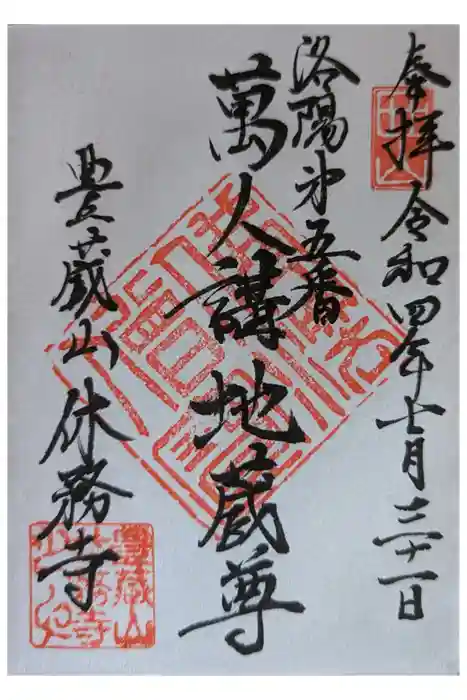 奉拝 令和四年七月三十一日
洛陽第五番
萬人講地蔵尊
豊蔵山 休務寺